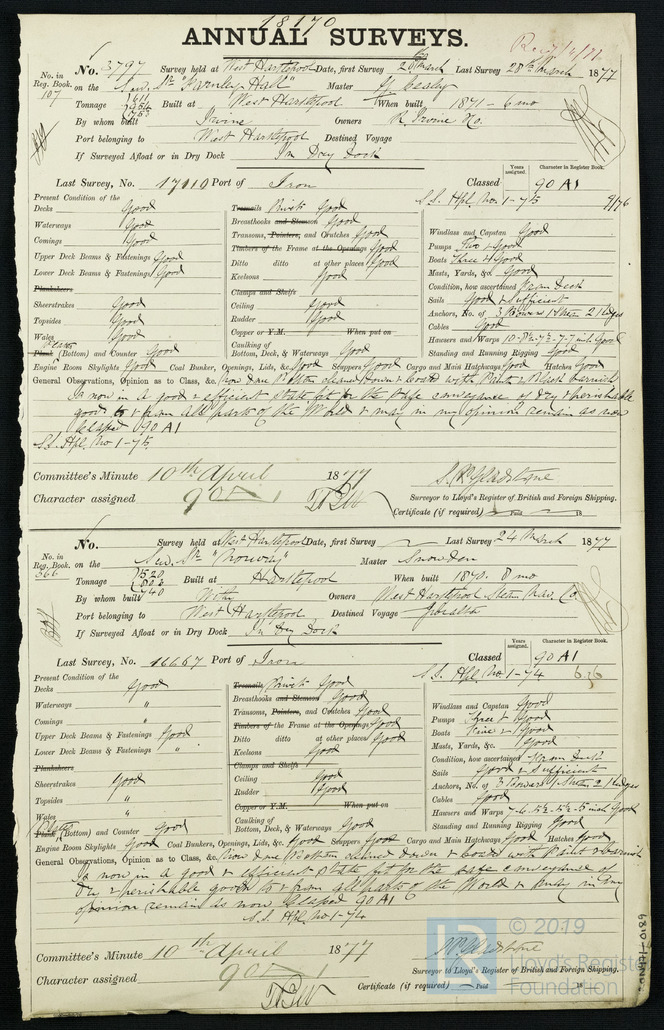 18170
ANNUAL SURVEYS.
No. in Reg. Book. 107
No. 3797 Survey held at West Hartlepool Date, first Survey 26th March Last Survey 28th March 1877
on the Screw Str "Farnley Hall" Master
Tonnage Built at West Hartlepool When built 1871 - 6 mo
By whom built Irvine Owners R. Irvine & Co.
Port belonging to West Hartlepool Destined Voyage
If Surveyed Afloat or in Dry Dock In Dry Dock
Years assigned. Character in Register Book.
Last Survey, No. 17010 Port of Iron Classed 90 A1
S.S. Hpl. No. 1-75 9/76
Present Condition of the
Decks Good
Waterways Good
Comings Good
Upper Deck Beams & Fastenings Good
Lower Deck Beams & Fastenings Good
Planksheers
Sheerstrakes Good
Topsides Good
Wales Good
Plates
Plank (Bottom) and Counter Good
Treenails Rivets Good
Breasthooks and Stemson Good
Transoms, Pointers, and Crutches Good
Timbers of the Frame at the Openings Good
Ditto ditto at other places Good
Keelsons Good
Clamps and Shelfs
Ceiling Good
Rudder Good
Copper or Y.M. When put on
Caulking of
Bottom, Deck, & Waterways Good
Windlass and Capstan Good
Pumps Two & Good
Boats Three & Good
Masts, Yards, &c. Good
Condition, how ascertained From Deck
Sails Good & Sufficient
Anchors, No. of 3 Bowers 1 Stream 2 Kedges
Cables Good
Hawsers and Warps Good
Standing and Running Rigging Good
Engine Room Skylights Good Coal Bunker, Openings, Lids, &c. Good Scuppers Good Cargo and Main Hatchways Good Hatches Good
General Observations, Opinion as to Class, &c. Now done Bottom cleaned down & coated with Paint & Black varnish
Is now in a good & efficient state fit for the safe conveyance of dry & perishable
goods to & from all parts of the World & may in my opinion remain as now
Classed 90 A1
S.S. Hpl. No. 1-75
Committee's Minute 10th April 1877
Character assigned 90 A1
Surveyor to Lloyd's Register of British and Foreign Shipping.
Certificate (if required) Paid 18
No. in Reg. Book. 366
No. Survey held at West Hartlepool Date, first Survey Last Survey 24 March 1877
on the Screw Str "Norway" Master Snowdon
Tonnage Built at Hartlepool When built 1870. 8 mo
By whom built Withy Owners West Hartlepool Steam Nav. Co.
Port belonging to West Hartlepool Destined Voyage Gibraltar
If Surveyed Afloat or in Dry Dock In Dry Dock
Years assigned. Character in Register Book.
Last Survey, No. 16667 Port of Iron Classed 90 A1
S.S. Hpl. No. 1-74
Present Condition of the
Decks Good
Waterways "
Comings "
Upper Deck Beams & Fastenings Good
Lower Deck Beams & Fastenings "
Planksheers
Sheerstrakes Good
Topsides "
Wales "
Plates
Plank (Bottom) and Counter Good
Treenails Rivets Good
Breasthooks and Stemson Good
Transoms, Pointers, and Crutches Good
Timbers of the Frame at the Openings Good
Ditto ditto at other places Good
Keelsons Good
Clamps and Shelfs
Ceiling Good
Rudder Good
Copper or Y.M. When put on
Caulking of
Bottom, Deck, & Waterways Good
Windlass and Capstan Good
Pumps Three & Good
Boats Five & Good
Masts, Yards, &c. Good
Condition, how ascertained From Deck
Sails Good & Sufficient
Anchors, No. of 3 Bowers 1 Stream 2 Kedges
Cables Good
Hawsers and Warps Good
Standing and Running Rigging Good
Engine Room Skylights Good Coal Bunkers, Openings, Lids, &c. Good Scuppers Good Cargo and Main Hatchways Good Hatches Good
General Observations, Opinion as to Class, &c. Now done Bottom cleaned down & coated with Paint & varnish
Is now in a good & efficient state fit for the safe conveyance of
dry & perishable goods to & from all parts of the World & may in my
opinion remain as now Classed 90 A1
S.S. Hpl. No 1-74
Committee's Minute 10th April 1877
Character assigned 90 A1
Surveyor to Lloyd's Register of British and Foreign Shipping.
Certificate (if required) Paid 18
© 2019
Lloyd's Register
Foundation